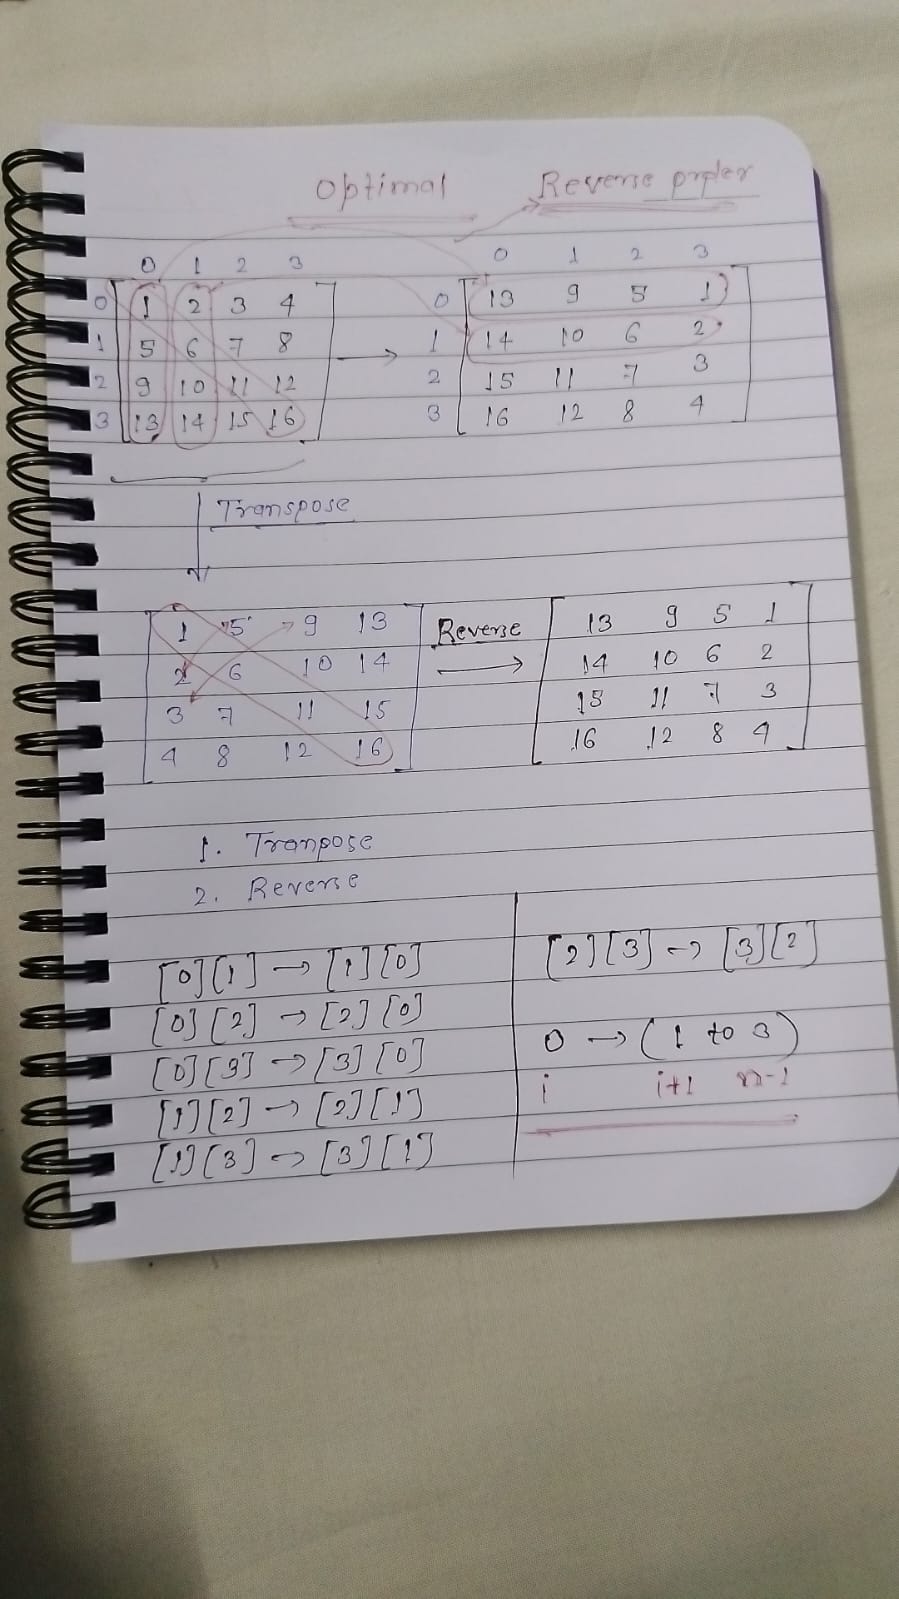 Optimal Reverse order
0 1 2 3
0 1 2 3
0 1 2 3 4
1 5 6 7 8
2 9 10 11 12
3 13 14 15 16
→
0 13 9 5 1
1 14 10 6 2
2 15 11 7 3
3 16 12 8 4
Transpose
1 5 9 13
2 6 10 14
3 7 11 15
4 8 12 16
Reverse
→
13 9 5 1
14 10 6 2
15 11 7 3
16 12 8 4
1. Tranpose
2. Reverse
[0][1] → [1][0]
[0][2] → [2][0]
[0][3] → [3][0]
[1][2] → [2][1]
[1][3] → [3][1]
[2][3] → [3][2]
0 → (1 to 3)
i i+1 n-1